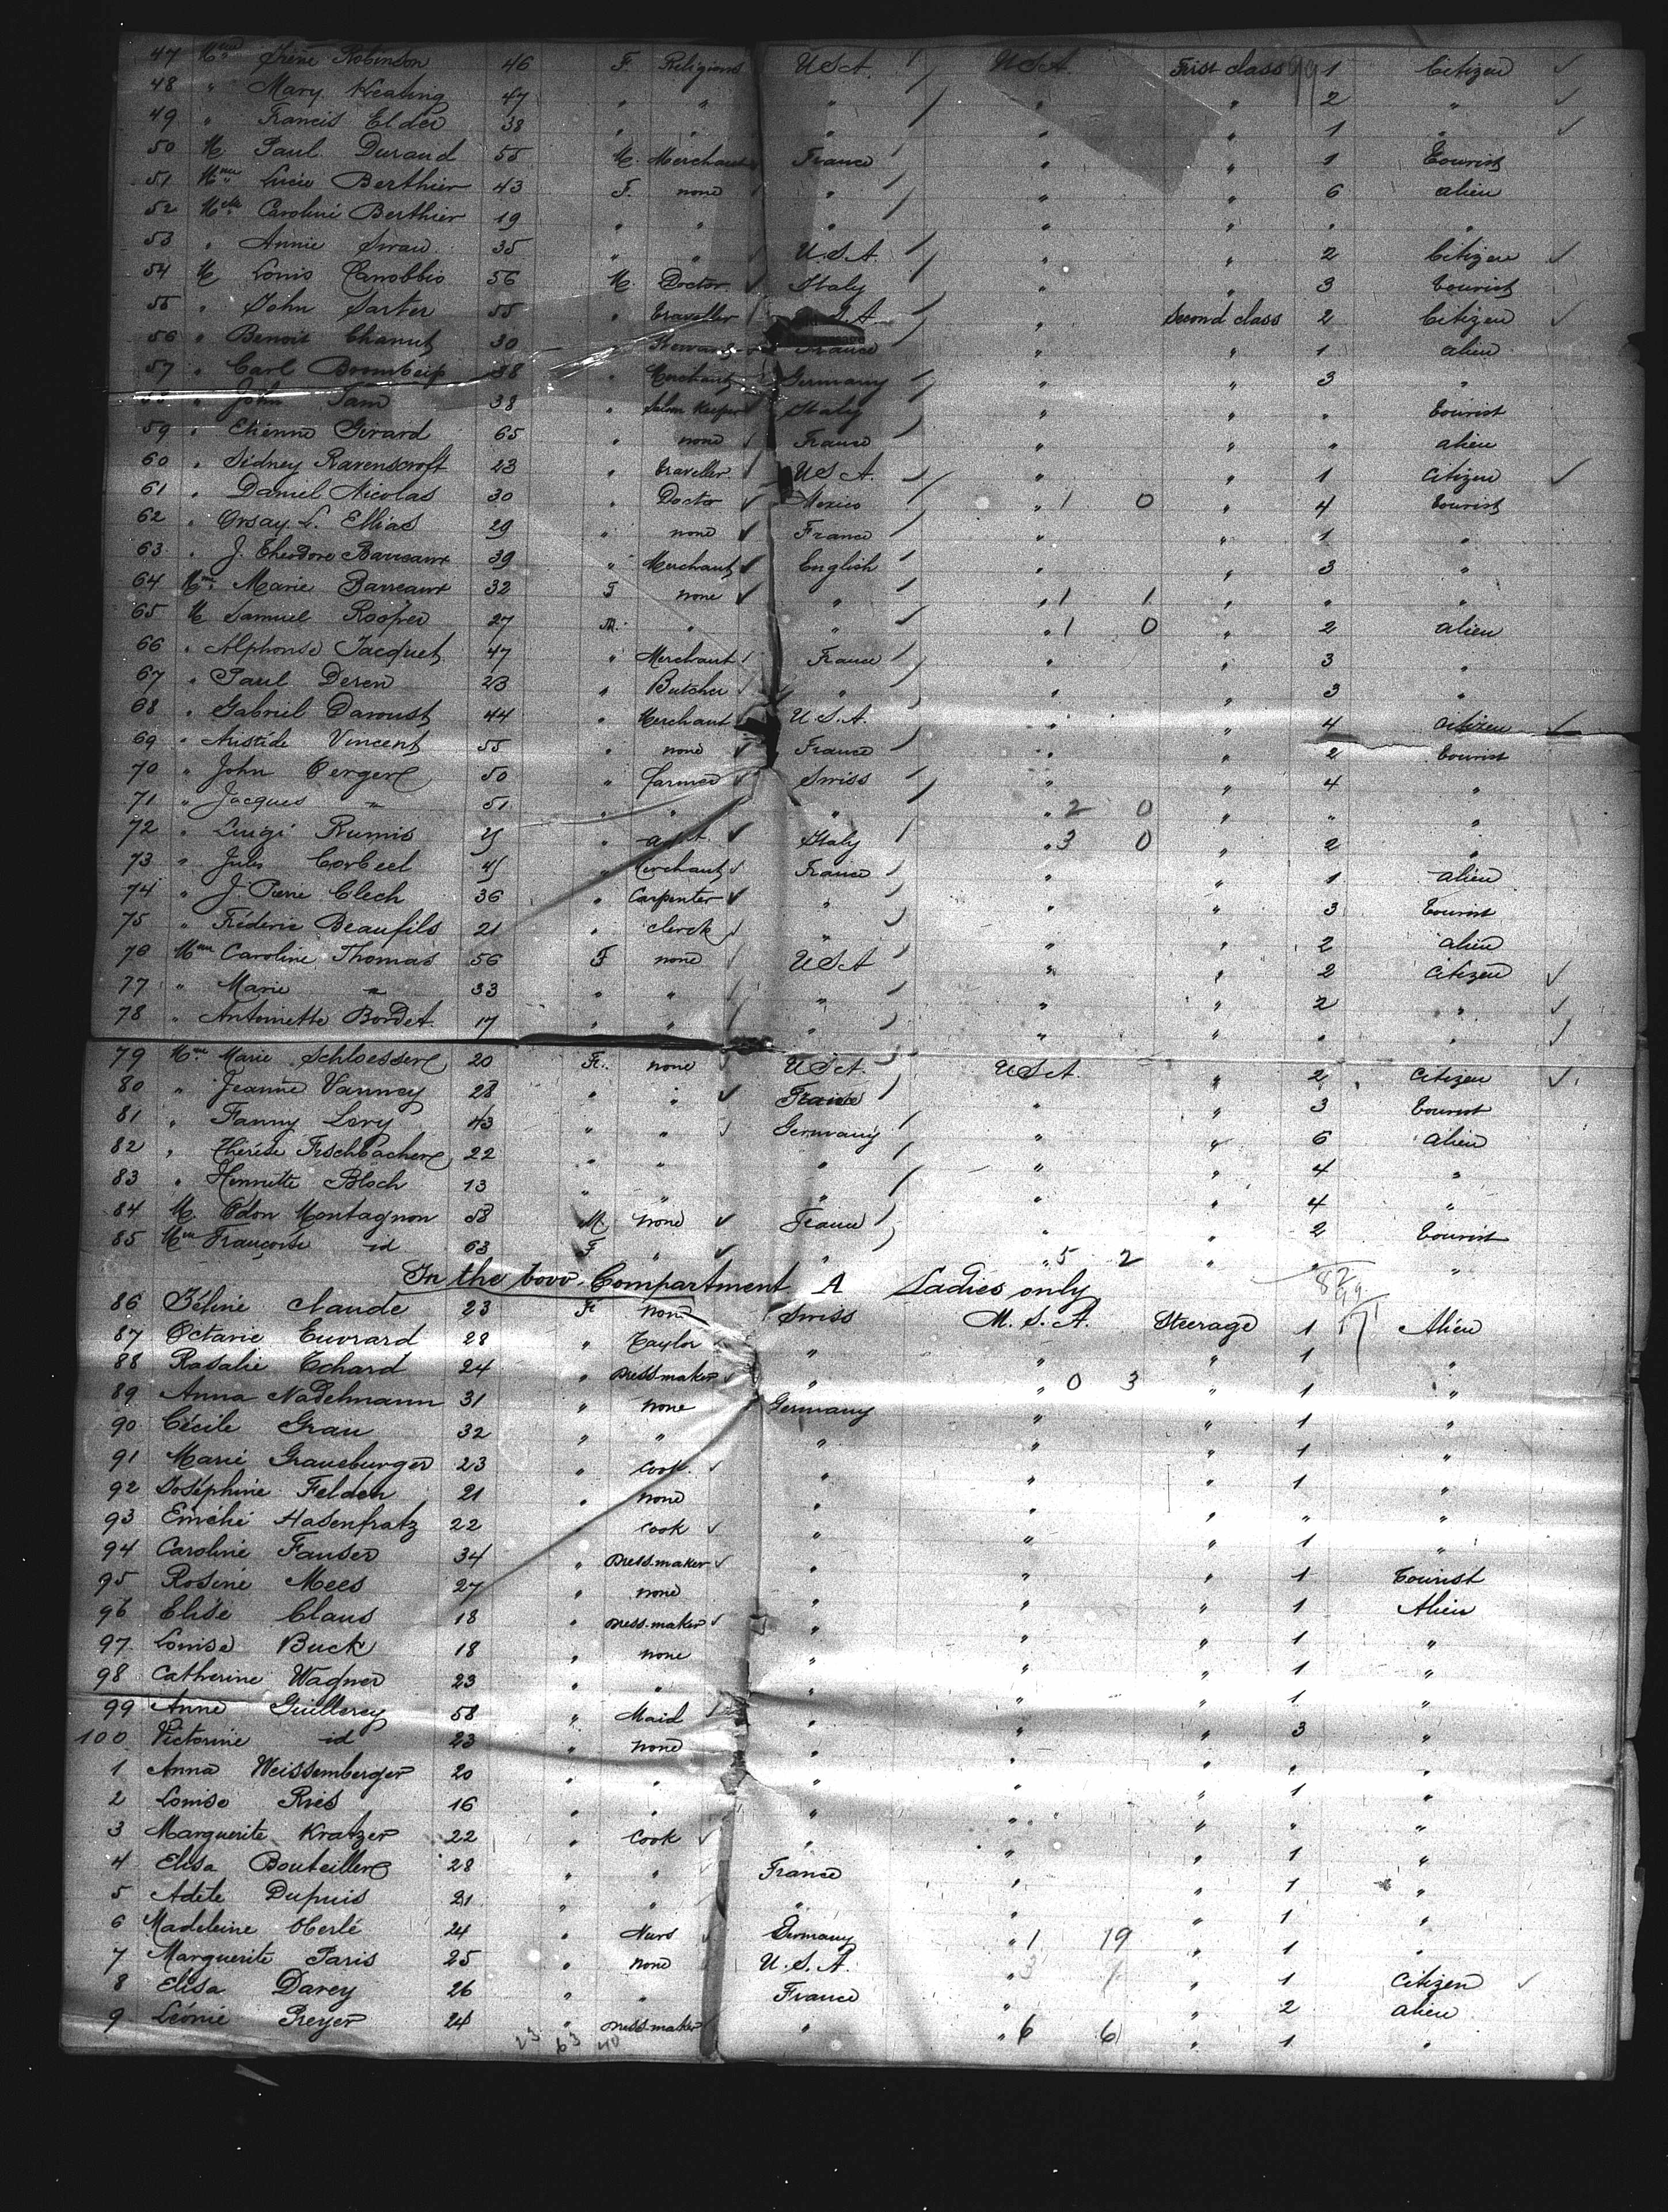 47 Mme Irène Robinson 46 F Religious U.S.A. U.S.A. First class 1 Citizen
48 " Mary Keating 47 " " " " " 2 "
49 " Francis Elder 38 " " " " " 1 "
50 M Paul Durand 55 M. Merchant France " " 1 tourist
51 Mme Lucie Berthier 43 F. none " " " 6 alien
52 Melle Caroline Berthier 19 " " " " " " "
53 " Annie 35 " " U.S.A. " " 2 Citizen
54 M Louis Canobbio 56 M. Doctor Italy " " 3 tourist
55 " John Sarter 55 " traveller " Second class 2 Citizen
56 " Benoit Chanut 30 " France " " 1 alien
57 " Carl 38 " Merchant Germany " " 3 "
" John Tam 38 " Salon Keeper Italy " " " tourist
59 " Etienne Girard 65 " none France " " " alien
60 " Sidney Ravenscroft 23 " traveller U.S.A. " " 1 Citizen
61 " Daniel Nicolas 30 " Doctor Mexico " 1 0 " 4 tourist
62 " Orsay L. Ellias 29 " none France " " 1 "
63 " J. Théodore Barreaux 39 " Merchant English " " 3 "
64 Me Marie Barreaux 32 F none " " 1 1 " " "
65 M Samuel Rooper 27 M. " " " 1 0 " 2 alien
66 " Alphonse Jacquet 47 " Merchant France " " 3 "
67 " Paul Deren 23 " Butcher " " " 3 "
68 " Gabriel Daroust 44 " Merchant U.S.A. " " 4 Citizen
69 " Aristide Vincent 55 " none France " " 2 tourist
70 " John Berger 50 " farmer Swiss " " 4 "
71 " Jacques " 51 " " " " 2 0 " " "
72 " Luigi Rumis " Italy " 3 0 " 2 "
73 " Jules Corbeel 45 " Merchant France " " 1 alien
74 " J. Pierre Clech 36 " Carpenter " " " 3 tourist
75 " Fréderic Beaufils 21 " clerck " " " 2 alien
76 Mme Caroline Thomas 56 F none U.S.A " " 2 Citizen
77 " Marie " 33 " " " " " 2 "
78 " Antoinette Bordet 17 " " " " " " "
79 Me Marie Schloesser 20 F. none U.S.A. U.S.A. " 2 Citizen
80 " Jeanne Vanney 28 " " France " " 3 tourist
81 " Fanny Levy 43 " " Germany " " 6 alien
82 " Thérèse Fischbacher 22 " " " " " 4 "
83 " Henriette Bloch 13 " " " " " 4 "
84 M. Odon Montagnon 58 M. none France " " 2 tourist
85 Mme Françoise id 63 F " " " 5 2 " " "
In the Compartment A Ladies only
86 Zéline Claude 23 F none Swiss U.S.A. Steerage 1 Alien
87 Octavie Euvrard 28 " Taylor " " " 1 "
88 Rosalie Echard 24 " Dressmaker " " 0 3 " 1 "
89 Anna Nadelmann 31 " none Germany " " 1 "
90 Cécile Grau 32 " " " " " 1 "
91 Marie Grauburger 23 " cook " " " 1 "
92 Joséphine Felden 21 " none " " " " "
93 Emélie Hasenfratz 22 " cook " " " 1 "
94 Caroline Fauser 34 " Dressmaker " " " 1 tourist
95 Rosine Mees 27 " none " " " 1 Alien
96 Elise Claus 18 " Dressmaker " " " 1 "
97 Louise Buck 18 " none " " " 1 "
98 Catherine Wagner 23 " " " " " 1 "
99 Anne Guillerey 58 " Maid " " " 3 "
100 Victorine id 23 " none " " " " "
1 Anna Weissemberger 20 " " " " " 1 "
2 Louise Riès 16 " " " " " " "
3 Marguerite Kratzer 22 " cook " " " 1 "
4 Elisa Bouteiller 28 " " France " " 1 "
5 Adèle Dupuis 21 " " " " " 1 "
6 Madeleine Oberlé 24 " Nurs Germany " 1 19 " 1 "
7 Marguerite Paris 25 " none U.S.A. " 3 " 1 Citizen
8 Elisa Darey 26 " " France " " 2 alien
9 Léonie Preyer 24 " Dressmaker " " 6 6 " 1 "
23 63 40